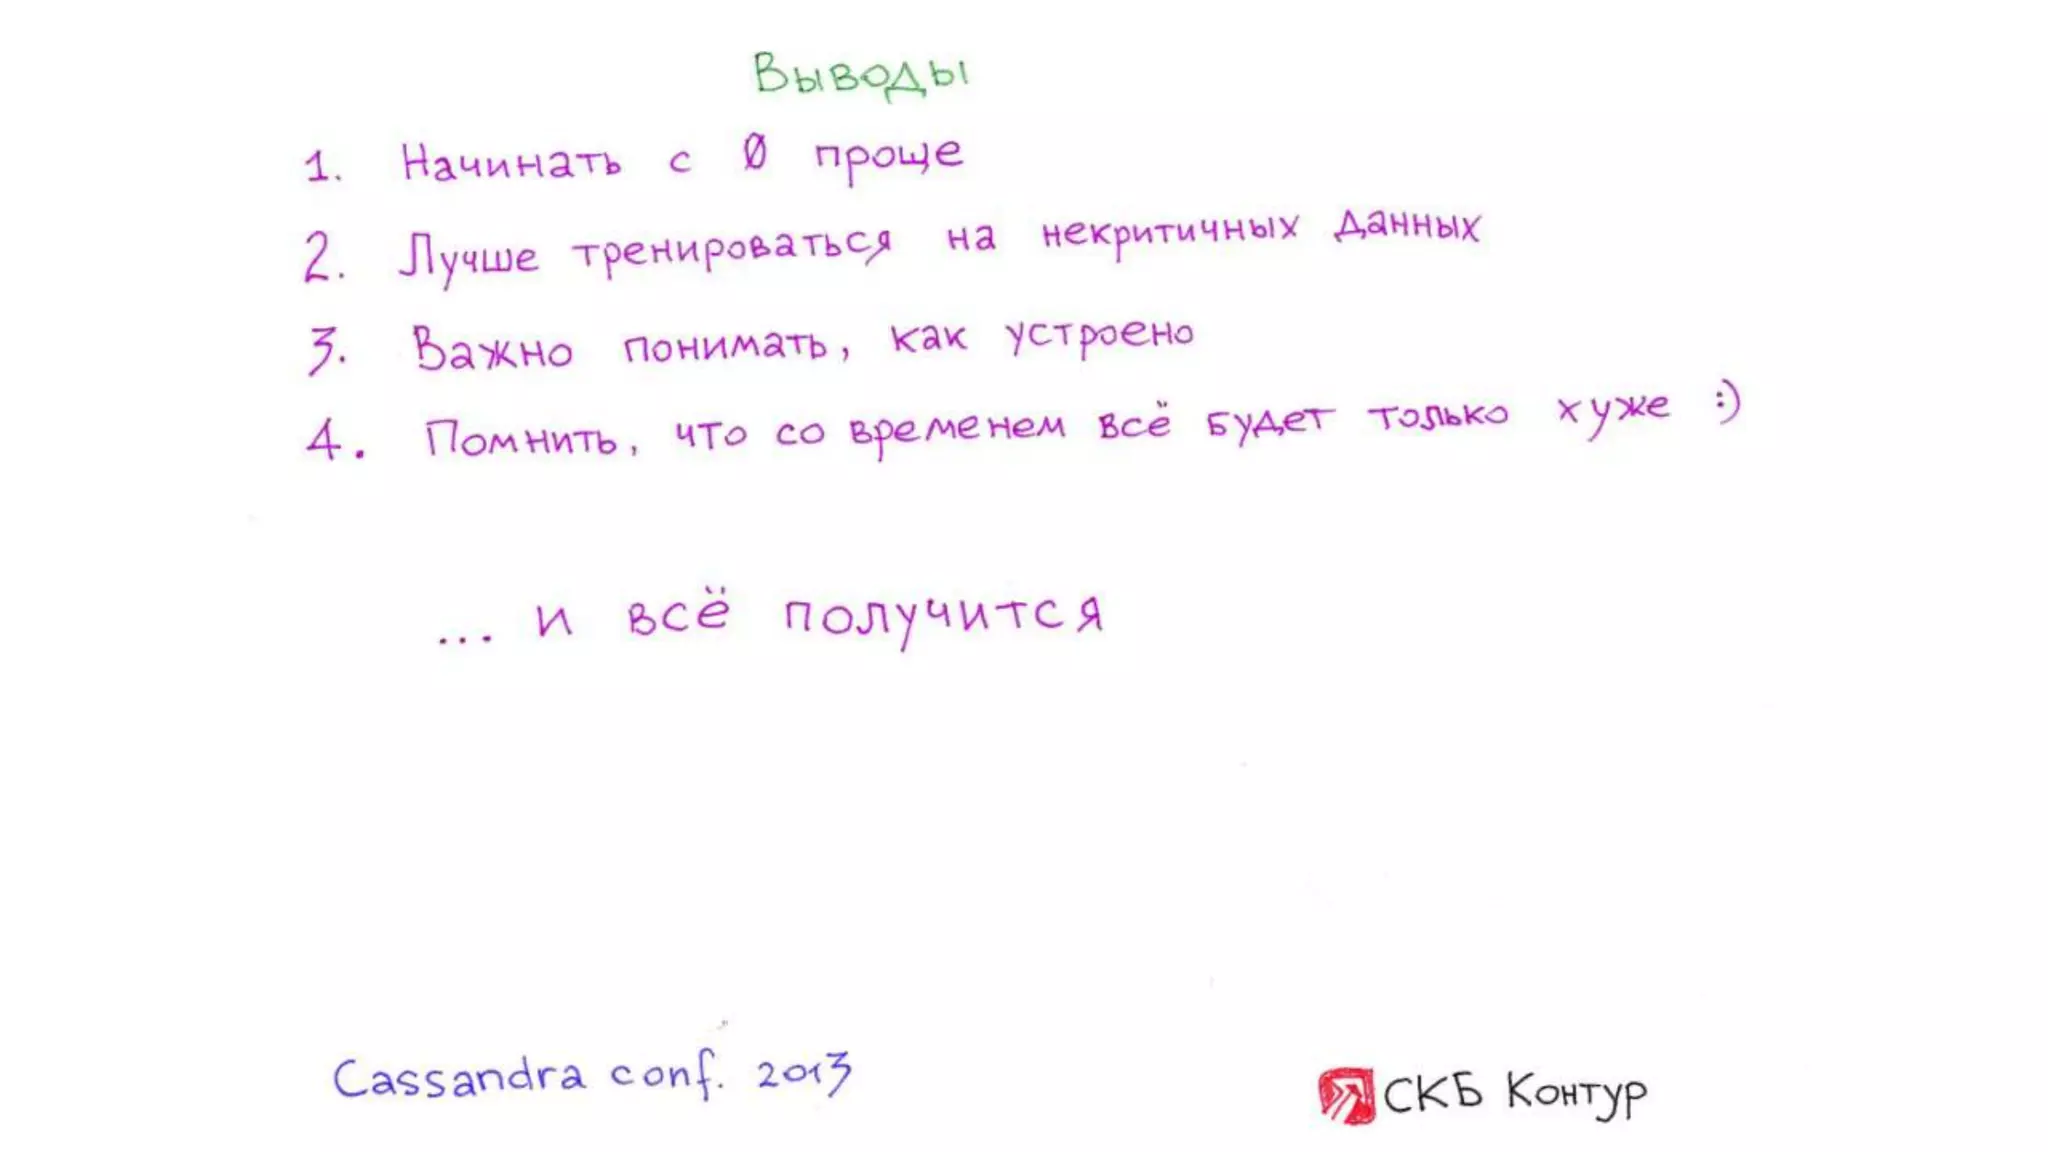 Выводы
1. Начинать с 0 проще
2. Лучше тренироваться на некритичных данных
3. Важно понимать, как устроено
4. Помнить, что со временем всё будет только хуже :)
... и всё получится
Cassandra conf. 2013
СКБ Контур